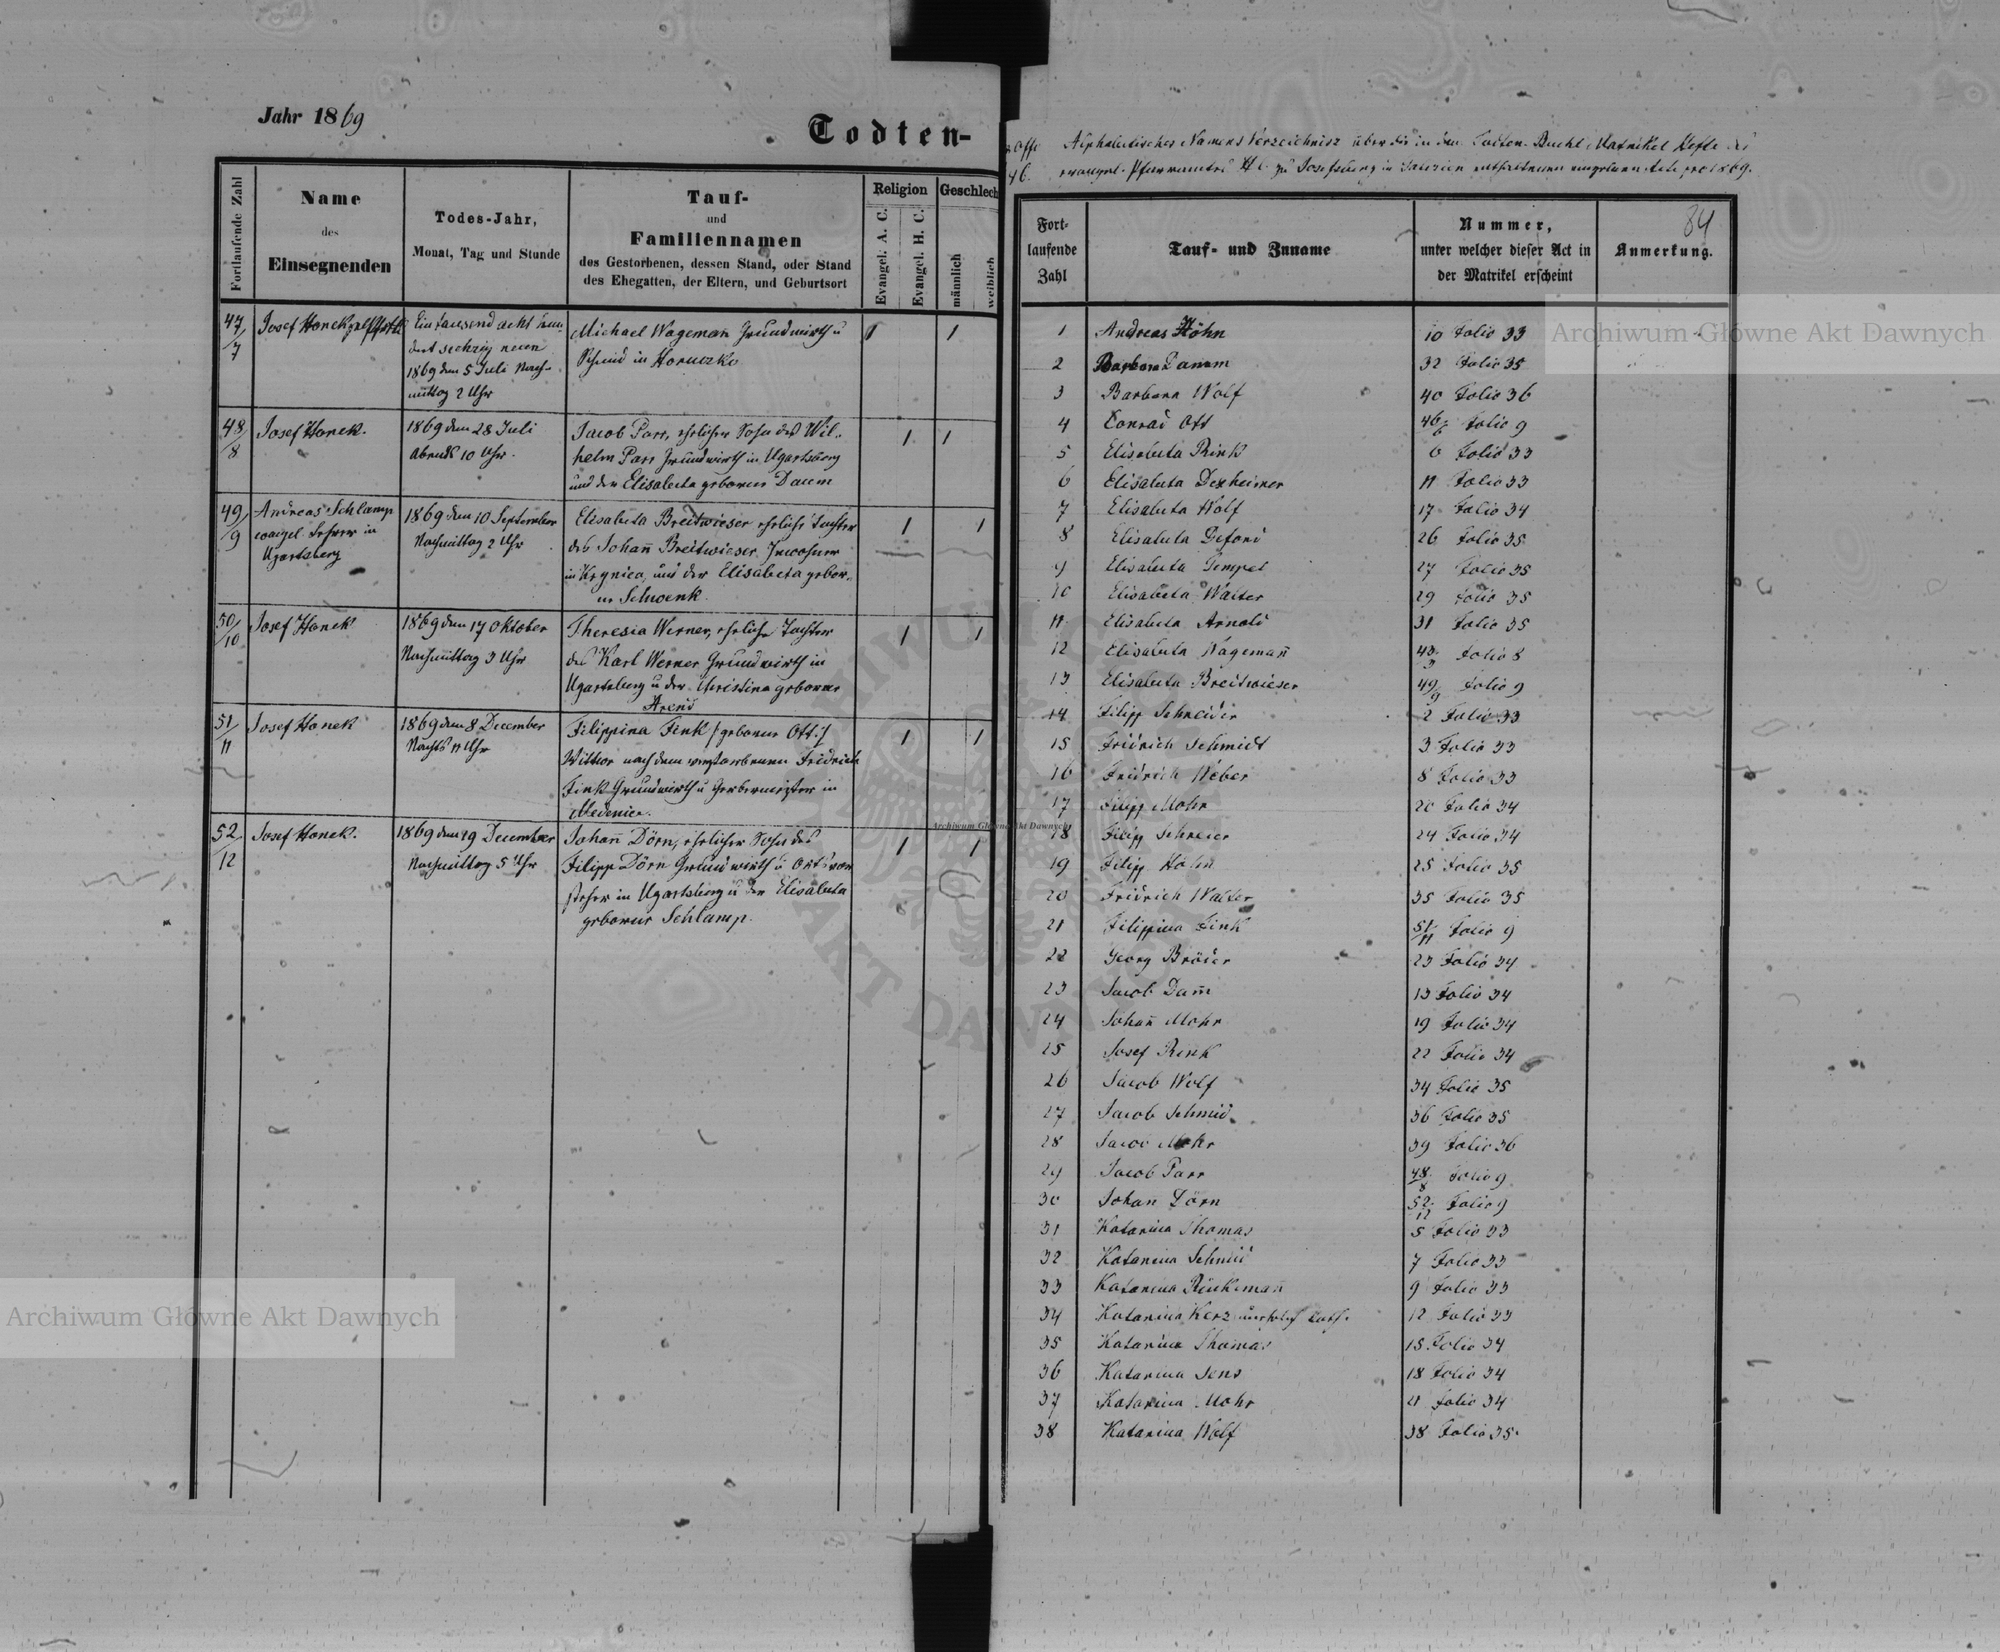 Jahr 1869
Todten-
Fortlaufende Zahl
Name
des
Einsegnenden
Todes-Jahr,
Monat, Tag und Stunde
Tauf-
und
Familiennamen
des Gestorbenen, dessen Stand, oder Stand
des Ehegatten, der Eltern, und Geburtsort
Religion
Evangel. A. C.
Evangel. H. C.
Geschlech
männlich
weiblich
47/7
Josef Honek
Ein tausend acht hun-
dert sechzig neun
1869 den 5 Juli Nach-
mittag 2 Uhr
Michael Wageman Grundwirth u
Schmid in Horucko
1 1
48/8
Josef Honek.
1869 den 28 Juli
Abends 10 Uhr.
Jacob Parr, ehrlicher Sohn des Wil-
helm Parr Grundwirth in Ugartsberg
und der Elisabeta geborne Daum
1 1
49/9
Andreas Schlamp
evangel. Lehrer in
Ugartsberg
1869 den 10 September
Nachmittag 2 Uhr
Elisabeta Breitwieser ehrliche Tochter
des Johañ Breitwieser Inwohner
in Krynica, und der Elisabeta gebor-
ne Schwenk.
1 1
50/10
Josef Honek
1869 den 17 Oktober
Nachmittag 3 Uhr
Theresia Werner, ehrliche Tochter
des Karl Werner Grundwirth in
Ugartsberg u der Christina geborne
Arend
1 1
51/11
Josef Honek
1869 dem 8 December
Nachts 11 Uhr
Filippina Fink /:geborne Ott:/
Witwe nach dem verstorbenen Fridrich
Fink Grundwirth u Gerbermeister in
Medenice.
1 1
52/12
Josef Honek.
1869 den 19 December
Nachmittag 5 Uhr
Johañ Dörn, ehrlicher Sohn des
Filipp Dörn Grundwirth u Ortsvor
steher in Ugartsberg u der Elisabeta
geborne Schlamp.
1 1
Alphabetisches Namens Verzeichnisz über die in dem Todten-Buche Matrikel Hefte des
evangel. Pfarramtes H C zu Josefsberg in Galizien enthaltenen einzelnen Acte pro 1869.
84
Fort-
laufende
Zahl
Tauf- und Zuname
Nummer,
unter welcher dieser Act in
der Matrikel erscheint
Anmerkung.
1 Andreas Höhn 10 Folio 33
2 Barbara 32 Folio 35
3 Barbara Wolf 40 Folio 36
4 Conrad Ott 46/6 Folio 9
5 Elisabeta Rink 6 Folio 33
6 Elisabeta Dexheimer 11 Folio 33
7 Elisabeta Wolf 17 Folio 34
8 Elisabeta 26 Folio 35
9 Elisabeta 27 Folio 35
10 Elisabeta Walter 29 Folio 35
11 Elisabeta Arnold 31 Folio 35
12 Elisabeta Wagemañ 43/3 Folio 8
13 Elisabeta Breitwieser 49/9 Folio 9
14 Filipp Schneider 2 Folio 33
15 Fridrich Schmidt 3 Folio 33
16 Fridrich Weber 8 Folio 33
17 Filipp Mohr 20 Folio 34
18 Filipp Schreier 24 Folio 34
19 Filipp Höhn 25 Folio 35
20 Fridrich Walter 35 Folio 35
21 Filippina Fink 51/11 Folio 9
22 Georg Bröder 23 Folio 34
23 Jacob Dam̄ 13 Folio 34
24 Johañ Mohr 19 Folio 34
25 Josef Rink 22 Folio 34
26 Jacob Wolf 34 Folio 35
27 Jacob Schmid 36 Folio 35
28 Jacob Mohr 39 Folio 36
29 Jacob Parr 48/8 Folio 9
30 Johan Dörn 52/12 Folio 9
31 Katarina Thomas 5 Folio 33
32 Katarina Schmid 7 Folio 33
33 Katarina Rückemañ 9 Folio 33
34 Katarina Kerz 12 Folio 33
35 Katarina Thomas 15 Folio 34
36 Katarina Jens 18 Folio 34
37 Katarina Mohr 21 Folio 34
38 Katarina Wolf 38 Folio 35.
Archiwum Główne Akt Dawnych
Archiwum Główne Akt Dawnych
Archiwum Główne Akt Dawnych